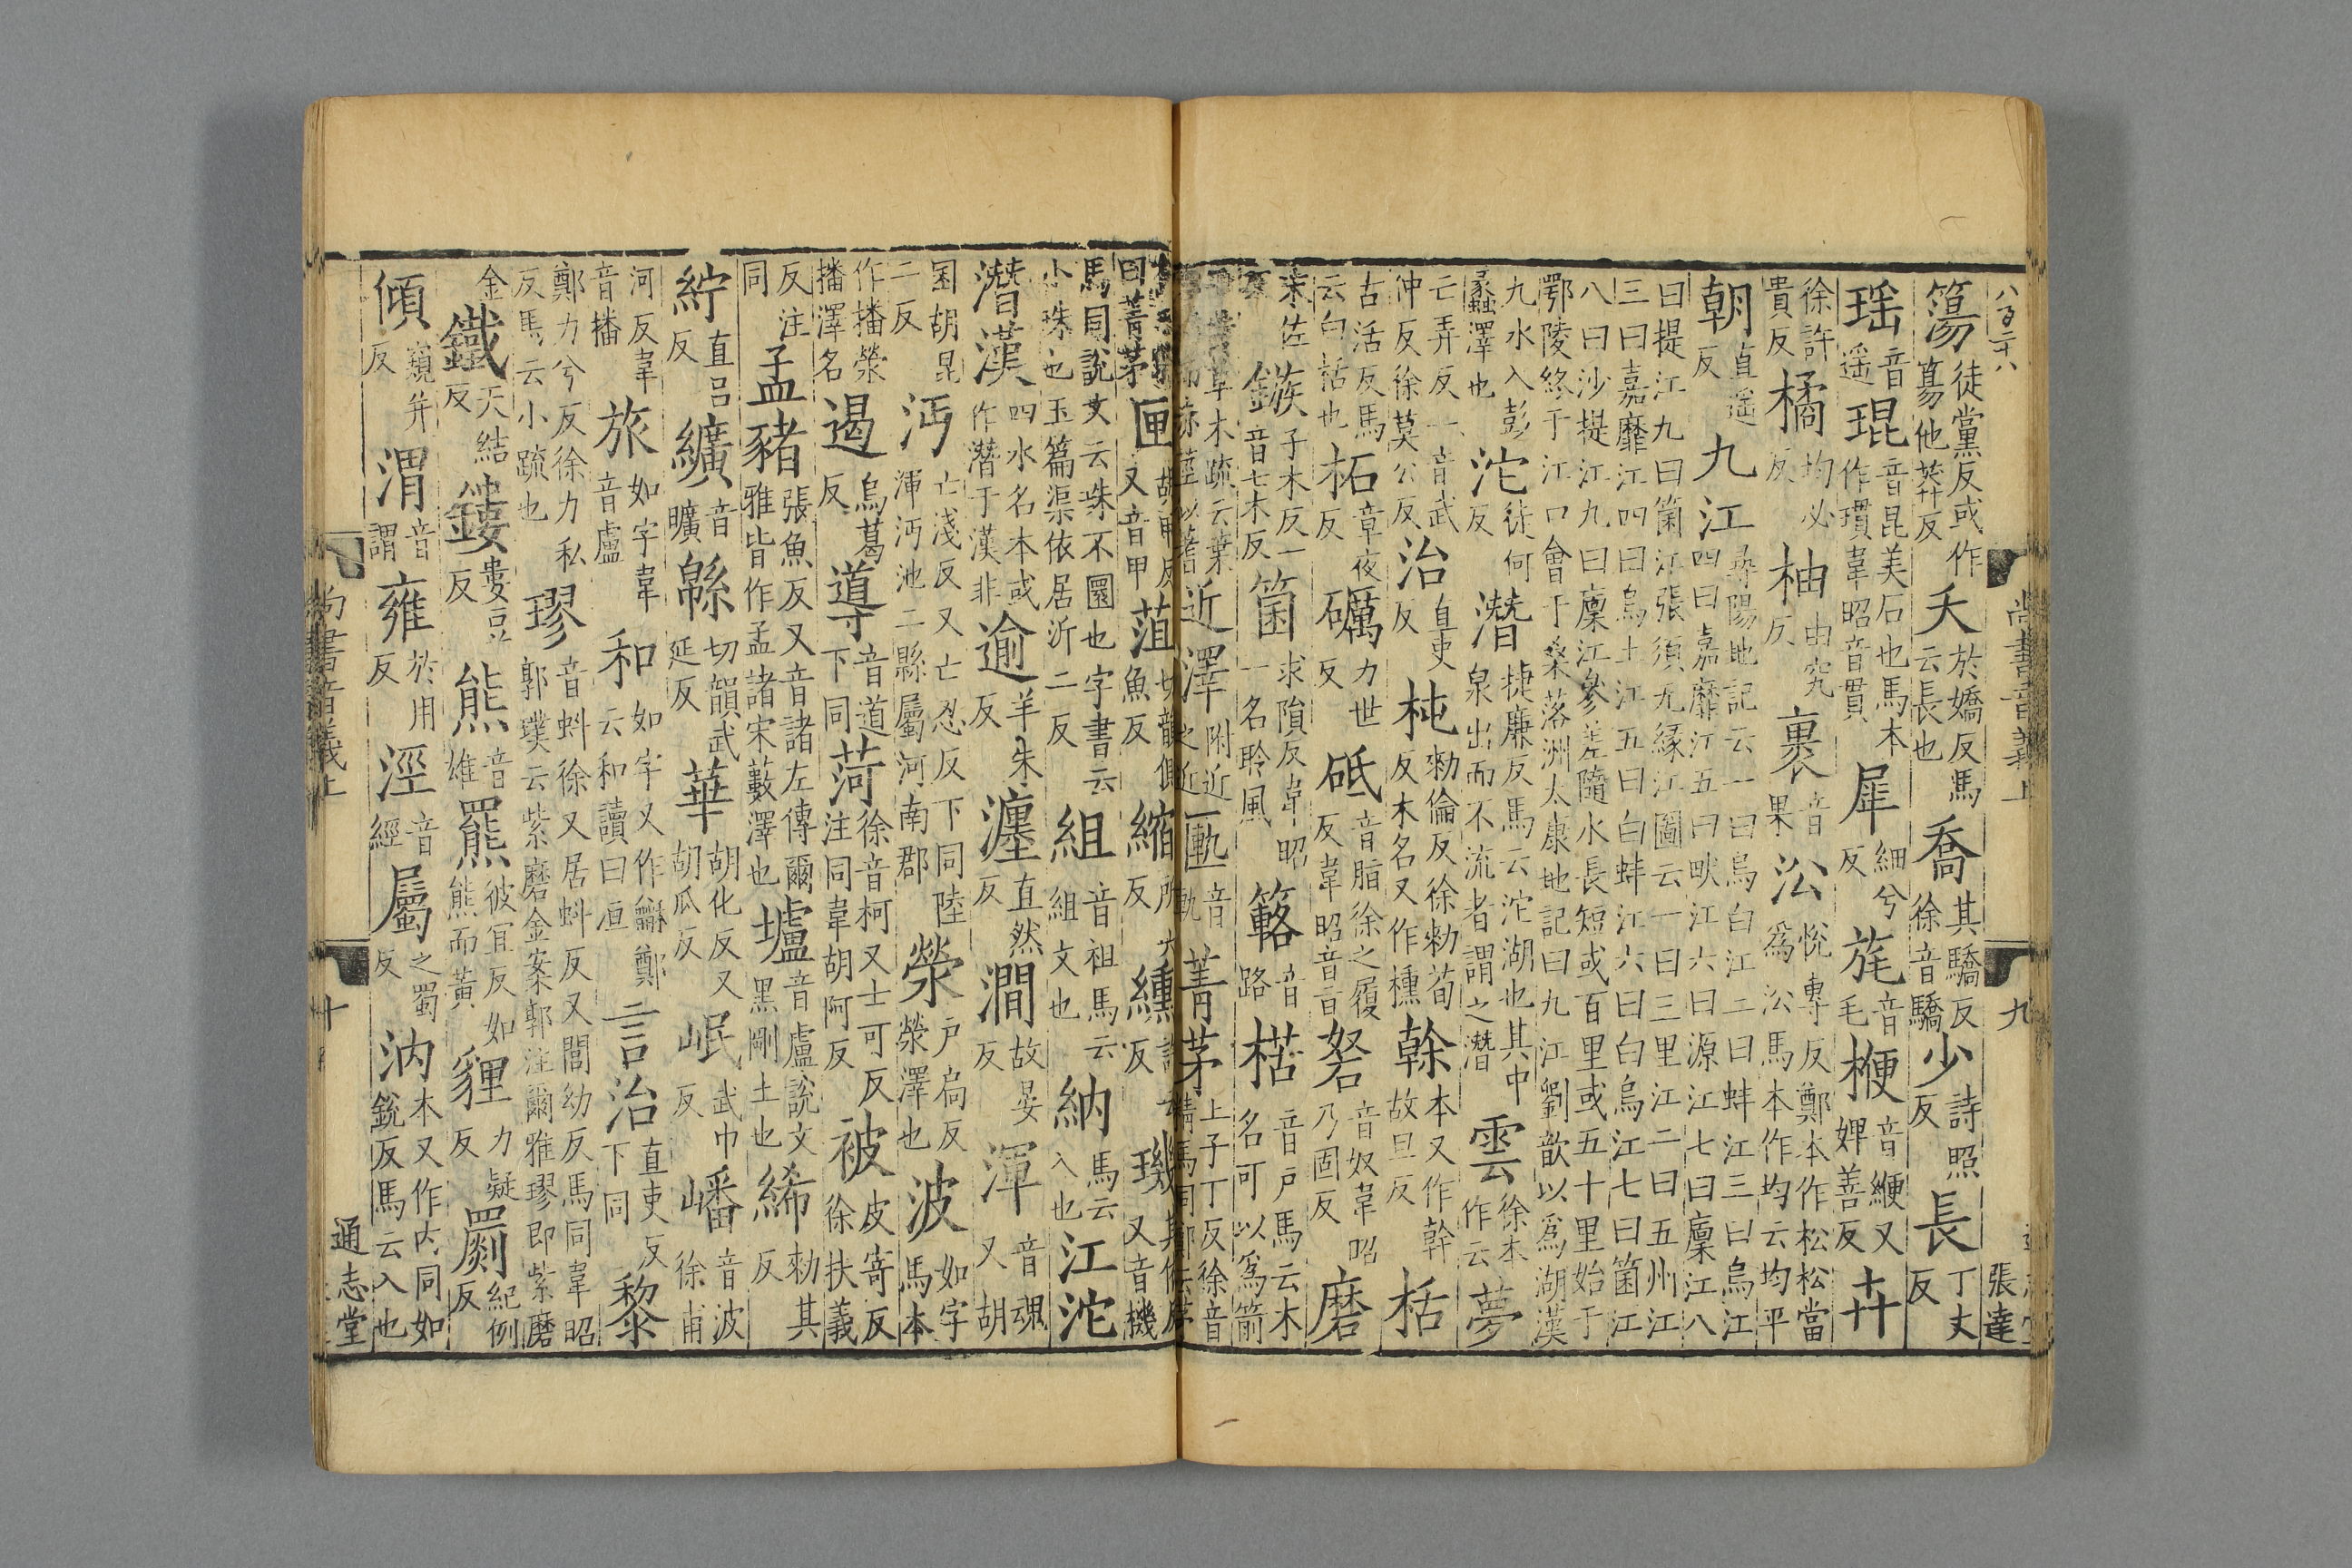 八百二十八 尚書音義上 九 張達
簜徒黨反或作簜他莽反夭於嬌反馬云長也喬其驕反徐音驕少詩照反長丁丈反
瑶音遥琨音昆美石也馬本作瓘韋昭音貫犀細兮反旄音毛楩音緶又婢善反卉
徐許貴反橘均必反柚由究反裹音果㳂悅專反鄭本作松松當爲㳂馬本作均云均平
朝直遥反九江尋陽地記云一曰烏白江二曰蚌江三曰烏江四曰嘉靡江五曰畎江六曰源江七曰廩江八
曰提江九曰箘江張須无緣江圖云一曰三里江二曰五州江三曰嘉靡江四曰烏土江五曰白蚌江六曰白烏江七曰箘江
八曰沙提江九曰廩江參差隨水長短或百里或五十里始于鄂陵終于江口會于桑落洲太康地記曰九江劉歆以爲湖漢
九水入彭蠡澤也沱徒何反潛捷廉反馬云沱湖也其中泉出而不流者謂之潛雲徐本作云夢
亡弄反一音武仲反徐莫公反治直吏反杶勑倫反徐勑荀反木名又作櫄榦本又作幹故旦反栝
古活反馬云白栝也柘章夜反礪力世反砥音脂徐之履反韋昭音旨砮音奴韋昭乃固反磨
末佐反鏃子木反一音七木反箘求隕反韋昭一名聆風簵音路楛音戶馬云木名可以爲箭
草木疏云葉近澤附近之近匭音軌菁茅上子丁反徐音
曰菁茅匣胡甲反又音甲菹切韻側魚反縮所六反纁許云反璣其依反又音機
馬同說文云珠不圜也字書云小珠也玉篇渠依居沂二反組音祖馬云組文也納馬云入也江沱
潛漢四水名本或作潛于漢非逾羊朱反瀍直然反澗故晏反渾音魂又胡
囷胡昆二反沔亡淺反又亡忍反下同陸渾沔池二縣屬河南郡滎戶扃反滎澤也波如字馬本
作播滎播澤名遏烏葛反導音道下同菏徐音柯又士可反注同韋胡阿反被皮寄反徐扶義
反注同孟豬張魚反又音諸左傳爾雅皆作孟諸宋藪澤也壚音盧說文黑剛土也絺勑其反
紵直呂反纊音曠緜切韻武延反華胡化反又胡瓜反岷武巾反嶓音波徐甫
河反韋音播旅如字韋音盧和如字又作龢鄭云和讀曰洹言治直吏反下同黎
鄭力兮反徐力私反馬云小疏也璆音蚪徐又居蚪反又閭幼反馬同韋昭郭璞云紫磨金案郭注爾雅璆即紫磨
金鐵天結反鏤婁豆反熊音雄羆彼宜反如熊而黃貍力疑反罽紀例反
傾窺并反渭音謂雍於用反涇音經屬之蜀反汭本又作内同如銳反馬云入也
尚書音義上 十 通志堂